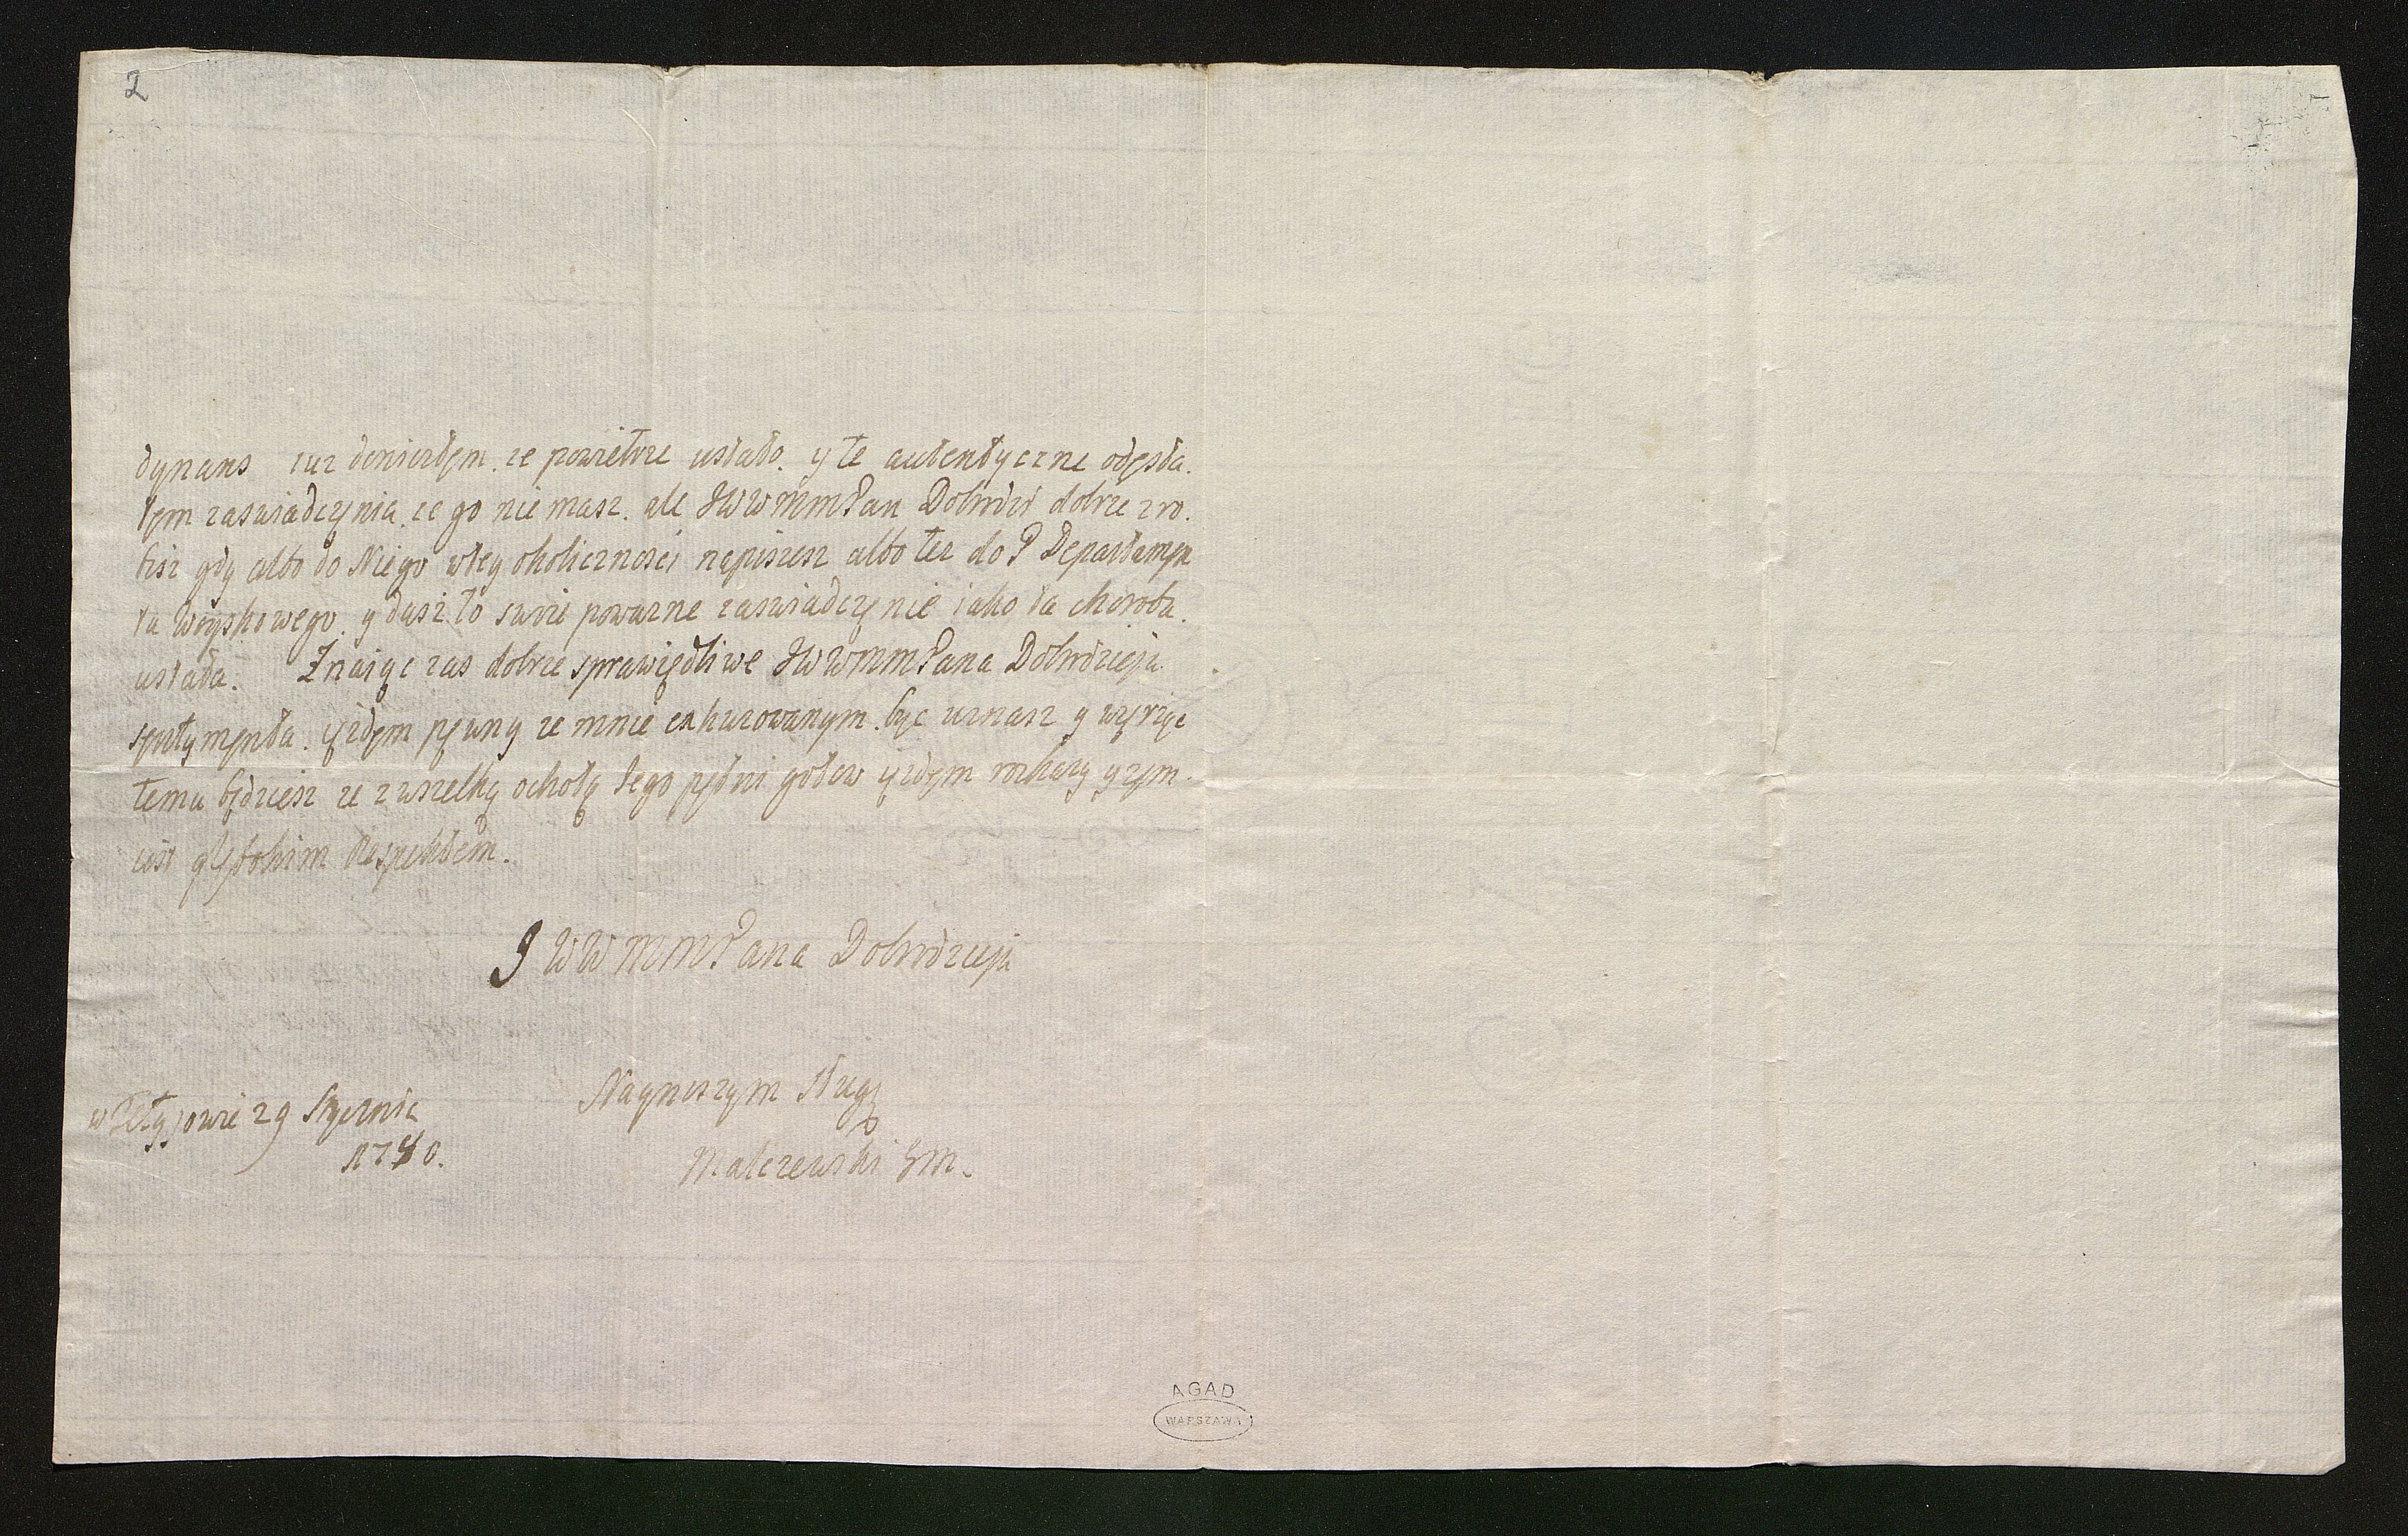 2
dynans iuz doniosłem. ze powietrze ustało. y te autentyczne odesła.
łem zaswiadczenia. ze go nie masz. ale JWWMMPan Dobrodziey dobrze zro.
bisz gdy albo do Niego wtey okolicznosci napiszesz albo tez do P Departamen
tu Woyskowego. y dasz to swoie powazne zaswiadczenie iako ta choroba.
ustała. Znaiąc zas dobrze sprawiedliwe JWWMMPana Dobrodzieja
sentymenta. iestem pewny ze mnie exkuzowanym. byc uznasz y wierzyc
temu będziesz ze z wszelką ochotą Jego pełnic gotow iestem rozkazy y zem.
iest głębokim Respektem.
JWWMMPana Dobrodzieja
Nayniszym Sługą
Malczewski GM.
w Tetyjowie 29 Stycznia
1780.
AGAD
WARSZAWA